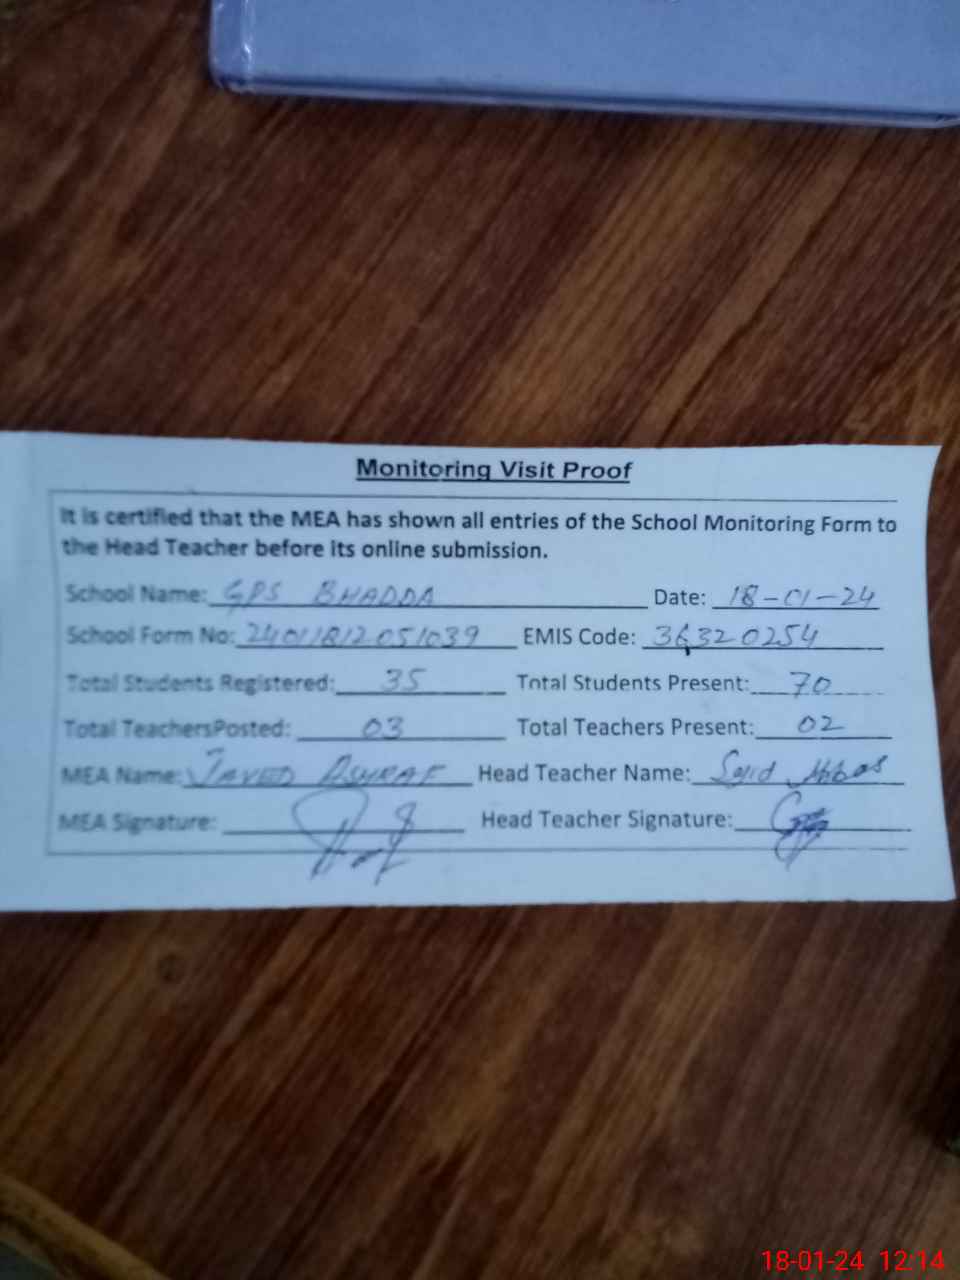 Monitoring Visit Proof
It is certified that the MEA has shown all entries of the School Monitoring Form to
the Head Teacher before its online submission.
School Name: GPS BHADDA Date: 18-01-24
School Form No: 24011812051039 EMIS Code: 36320254
Total Students Registered: 35 Total Students Present: 70
Total TeachersPosted: 03 Total Teachers Present: 02
MEA Name: JAVED ASHRAF Head Teacher Name: Sajid Abbas
MEA Signature: Head Teacher Signature:
18-01-24 12:14